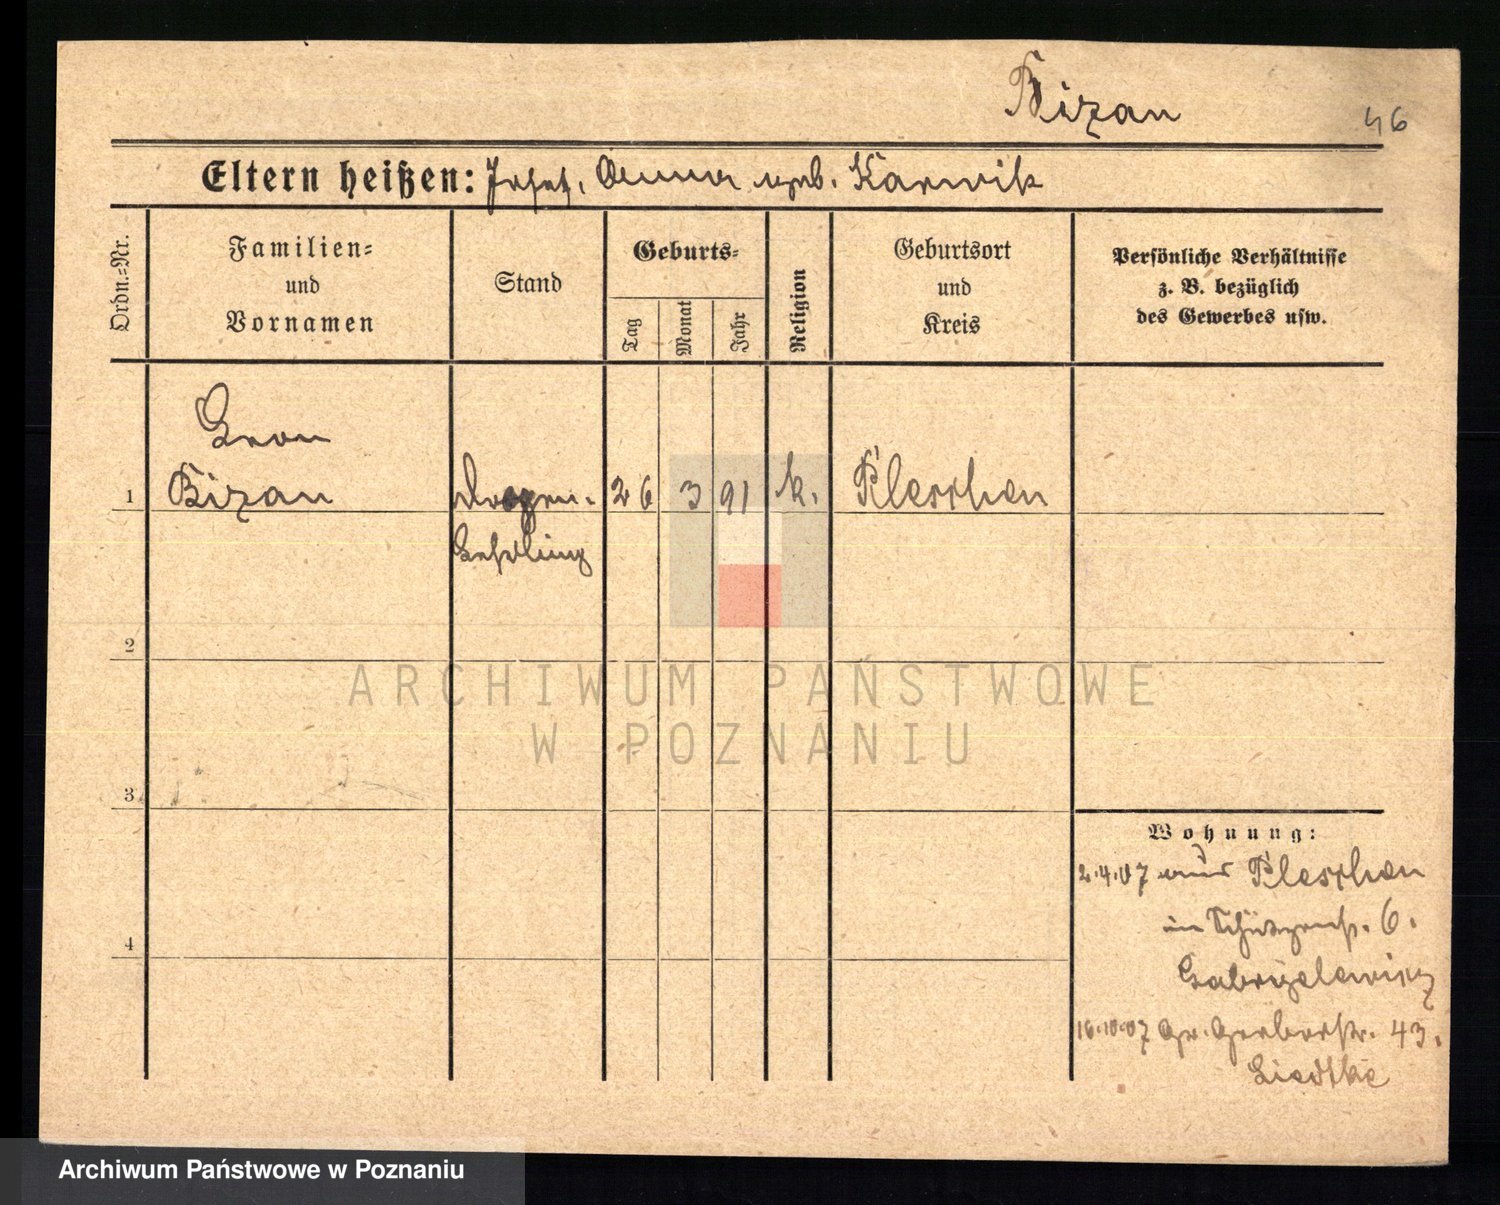 Bizan
46
Eltern heißen: Josef, Anna geb. Karwik
Ordn.-Nr.
Familien-
und
Vornamen
Stand
Geburts-
Tag
Monat
Jahr
Religion
Geburtsort
und
Kreis
Persönliche Verhältnisse
z. B. bezüglich
des Gewerbes usw.
Leon
1 Bizan Drogen- 26 3 91 k. Pleschen
Lehrling
2
ARCHIWUM PAŃSTWOWE
W POZNANIU
3
Wohnung:
2.4.07 aus Pleschen
6.
4
Gabryelewicz
16.10.07 Gr. Gerberstr. 43.
Liedtke
Archiwum Państwowe w Poznaniu